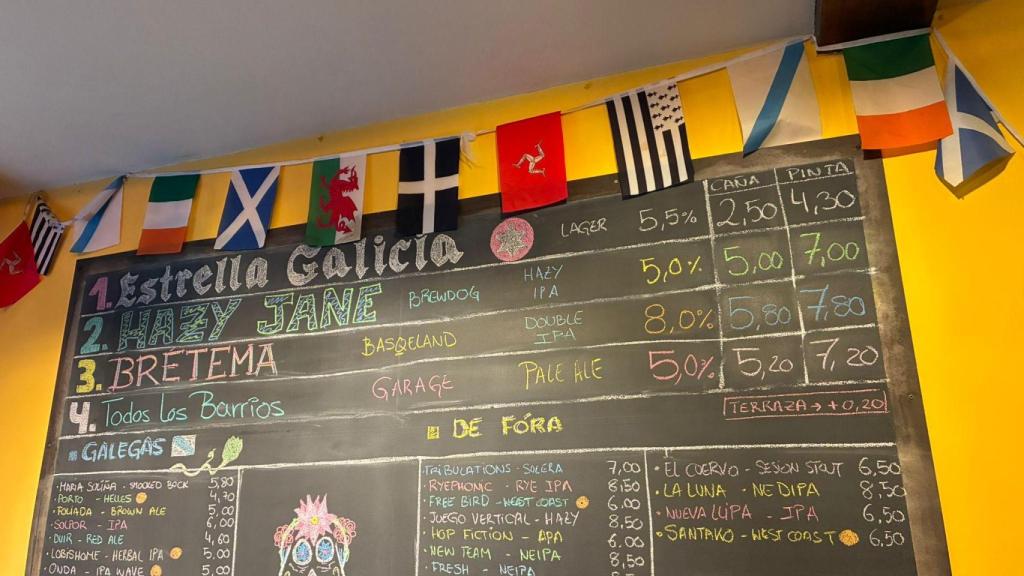 CAÑA PINTA
1. Estrella Galicia LAGER 5,5% 2,50 4,30
2. HAZY JANE BREWDOG HAZY IPA 5,0% 5,00 7,00
3. BRÉTEMA BASQELAND DOUBLE IPA 8,0% 5,80 7,80
4. Todos Los Barrios GARAGE PALE ALE 5,0% 5,20 7,20
TERRAZA → +0,20
GALEGAS
· MARIA SOLIÑA - SMOKED BOCK 5,80
· PORTO - HELLES 4,70
· POLIADA - BROWN ALE 5,00
· SOLPOR - IPA 6,00
· DUIR - RED ALE 4,60
· LOBISHOME - HERBAL IPA 5,00
· ONDA - IPA WAVE 5,00
DE FÓRA
TRIBULATIONS - SOLERA 7,00
· RYEPHONIC - RYE IPA 8,50
· FREE BIRD - WEST COAST 6,00
· JUEGO VERTICAL - HAZY 8,50
· HOP FICTION - APA 6,00
· NEW TEAM - NEIPA 8,50
· FRESH - NEIPA
· EL CUERVO - SESION STOUT 6,50
· LA LUNA - NE DIPA 8,50
· NUEVA LUPA - IPA 6,50
· SANTAKO - WEST COAST 6,50